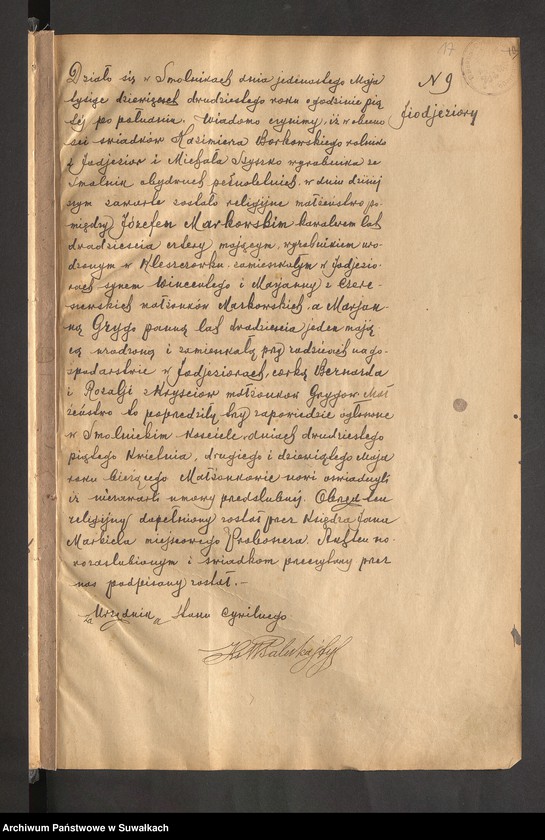 17
N 9
Jodjeziory
Działo się w Smolnikach dnia jedenastego Maja
tysiąc dziewięset drudziestego roku o godzinie pią
tej po południu. Wiadomo czynimy, iż w obecno
ści swiadków Kazimiera Borkowskiego rolnika
z Jodjezior i Michała Szyszko wyrobnika ze
Smolnik obydwuch pełnoletnich, w dniu dzisiej
szym zawarte zostało religijne małżeństwo po-
między Józefem Markowskim kawalerem lat
dwadziescia cztery mającym, wyrobnikiem uro-
dzonym w Kleszczówku zamieszkałym w Jodjezio-
rach synem Wincentego i Maryanny z Czere-
małżonków Markowskich, a Marjan-
ną Grygo panną lat dwadziescia jeden mają
cą urodzoną i zamieszkałą przy rodzicach na go-
spodarstwie w Jodjeziorach, córką Bernarda
i Rozalji z Krysciow małżonków Grygow. Mał
żeństwo to poprzedziły trzy zapowiedzie ogłoszone
w Smolnickim Kosciele w dniach drudziestego
piątego Kwietnia, drugiego i dziewiątego Maja
roku bieżącego Małżonkowie nowi oswiadczyli
iż niezawarli umowy przedslubnej. Obrzęd ten
religijny dopełniony został przez Księdza Jana
Markiela miejscowego Proboszcza. Akt ten no-
wozaslubionym i swiadkom przeczytany przez
nas podpisany został. –
za Urzędnika Stanu Cywilnego
Archiwum Państwowe w Suwałkach